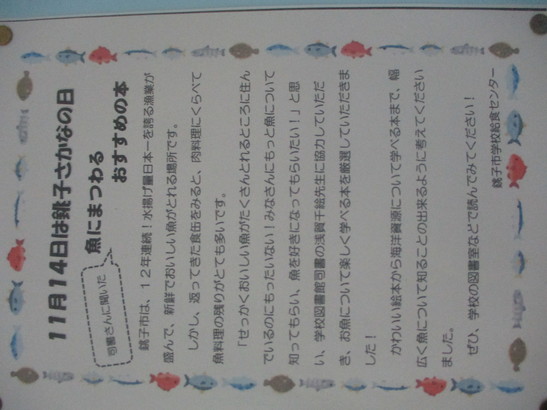 11月14日は銚子さかなの日
司書さんに聞いた
魚にまつわる
おすすめの本
銚子市は、12年連続！水揚げ量日本一を誇る漁業が
盛んで、新鮮でおいしい魚がとれる場所です。
しかし、返ってきた食缶をみると、肉料理にくらべて
魚料理の残りがとても多いです。
「せっかくおいしい魚がたくさんとれるところに住ん
でいるのにもったいない！みなさんにもっと魚について
知ってもらい、魚を好きになってもらいたい！」と思
い、学校図書館司書の浅賀千絵先生に協力していただ
き、お魚について楽しく学べる本を厳選していただきま
した！
かわいい絵本から海洋資源について学べる本まで、幅
広く魚について知ることの出来るように考えてください
ました。
ぜひ、学校の図書室などで読んでみてください！
銚子市学校給食センター